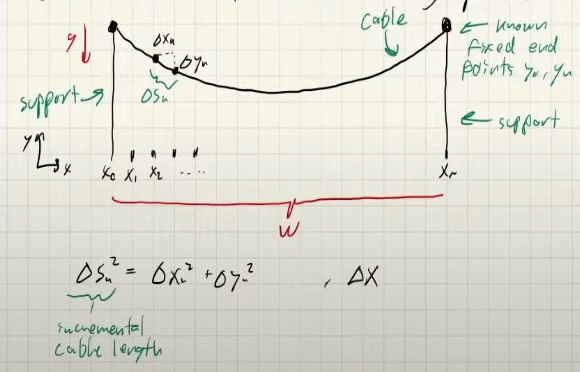 g
Δxₙ
Δyₙ
Δsₙ
cable
known
fixed end
points y₀, yₙ
support
support
y
x
x₀ x₁ x₂ ....
xₙ
W
Δsₙ² = Δxₙ² + Δyₙ² , Δx
incremental
cable length